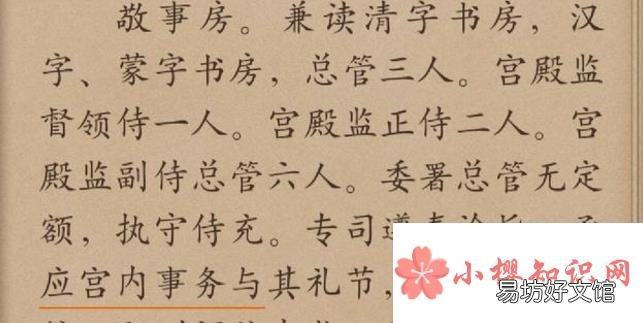 敬事房。兼读清字书房，汉
字、蒙字书房，总管三人。宫殿监
督领侍一人。宫殿监正侍二人。宫
殿监副侍总管六人。委署总管无定
额，执守侍充。专司遵
应宫内事务与其礼节，
小樱知识网
易坊好文馆